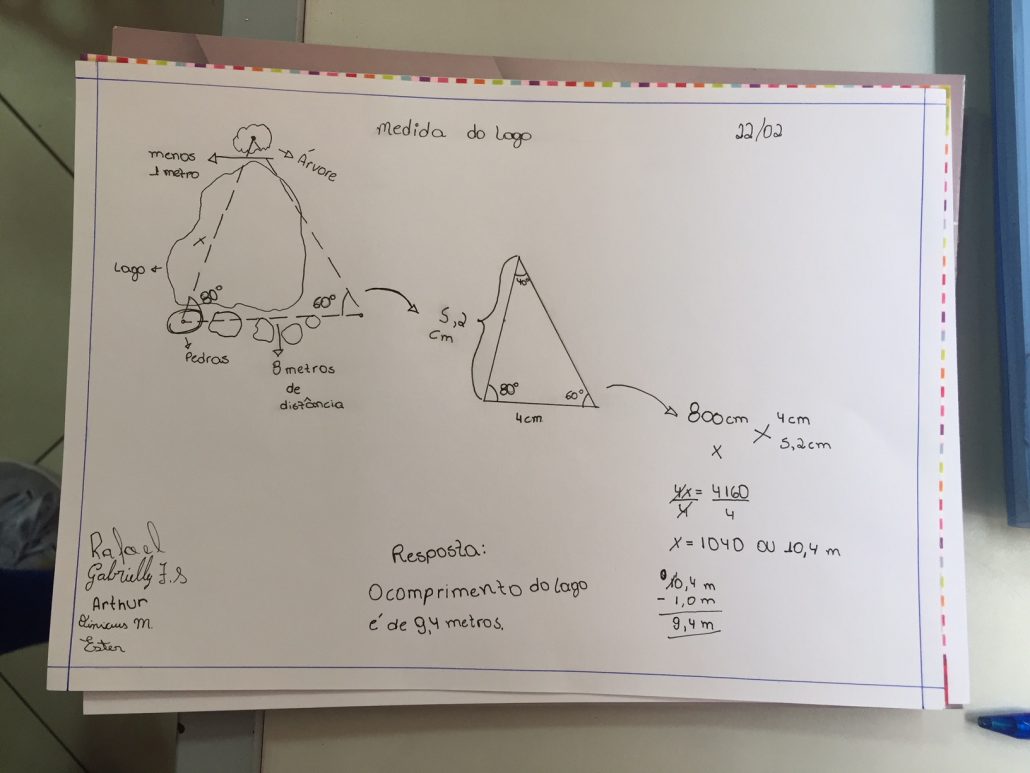 medida do lago
22/02
menos
1 metro
Árvore
x
Lago
80°
60°
Pedras
8 metros
de
distância
40°
5,2
cm
80°
60°
4cm
800cm 4cm
x 5,2cm
4x = 4160
4 4
x = 1040 ou 10,4 m
10,4 m
- 1,0 m
9,4 m
Resposta:
O comprimento do lago
é de 9,4 metros.
Rafael
Gabrielly F.S
Arthur
M.
Ester